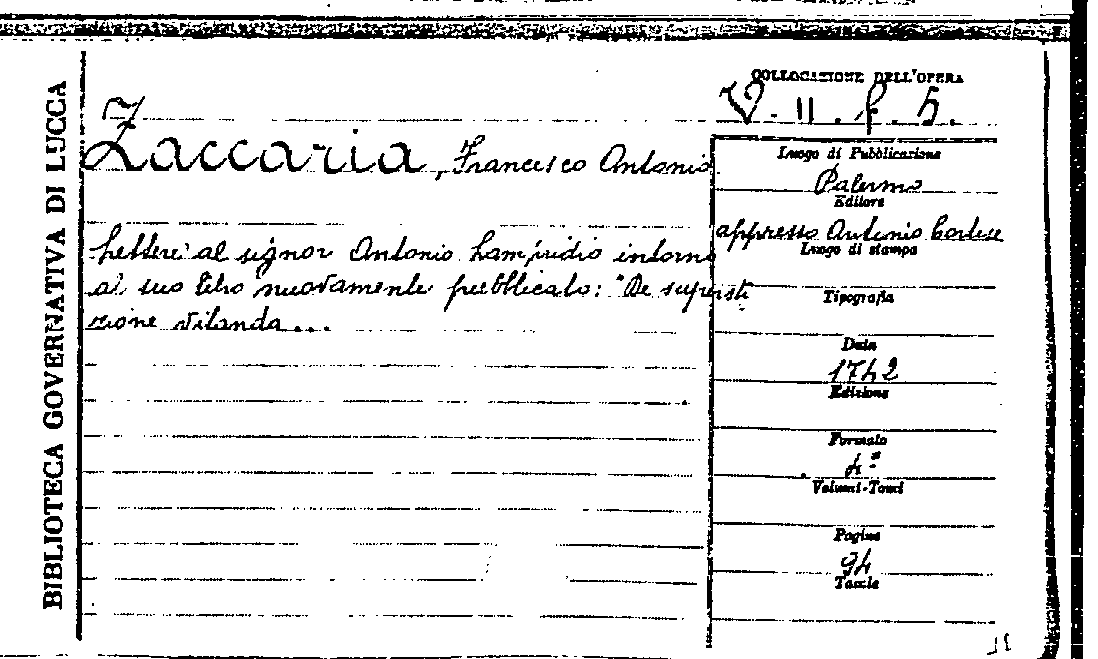 BIBLIOTECA GOVERNATIVA DI LUCCA
COLLOCAZIONE DELL'OPERA
V. II. f. 5.
Zaccaria, Francesco Antonio
Lettere al signor Antonio Lampridio intorno
al suo libro nuovamente pubblicato: "De supersti
zione vitanda...
Luogo di Pubblicazione
Palermo
Editore
appresso Antonio Cortese
Luogo di stampa
Tipografia
Data
1742
Edizione
Formato
4°
Volumi-Tomi
Pagine
94
Tavole